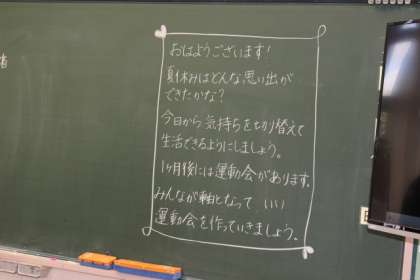 おはようございます!
夏休みはどんな思い出が
できたかな?
今日から気持ちを切り替えて
生活できるようにしましょう。
1ヶ月後には運動会があります。
みんなが軸となって いい
運動会を作っていきましょう。